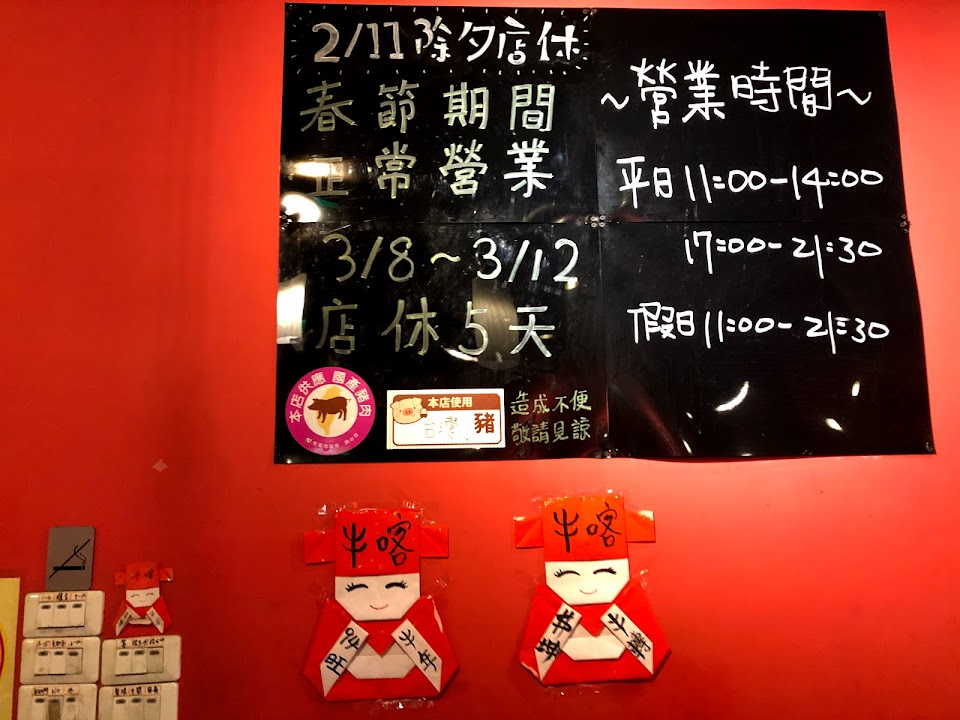 2/11除夕店休
春節期間
正常營業
3/8~3/12
店休5天
造成不便
敬請見諒
~營業時間~
平日11:00-14:00
17:00-21:30
假日11:00-21:30
本店供應 國產豬肉
本店使用
台灣 豬
牛喀
牛喀